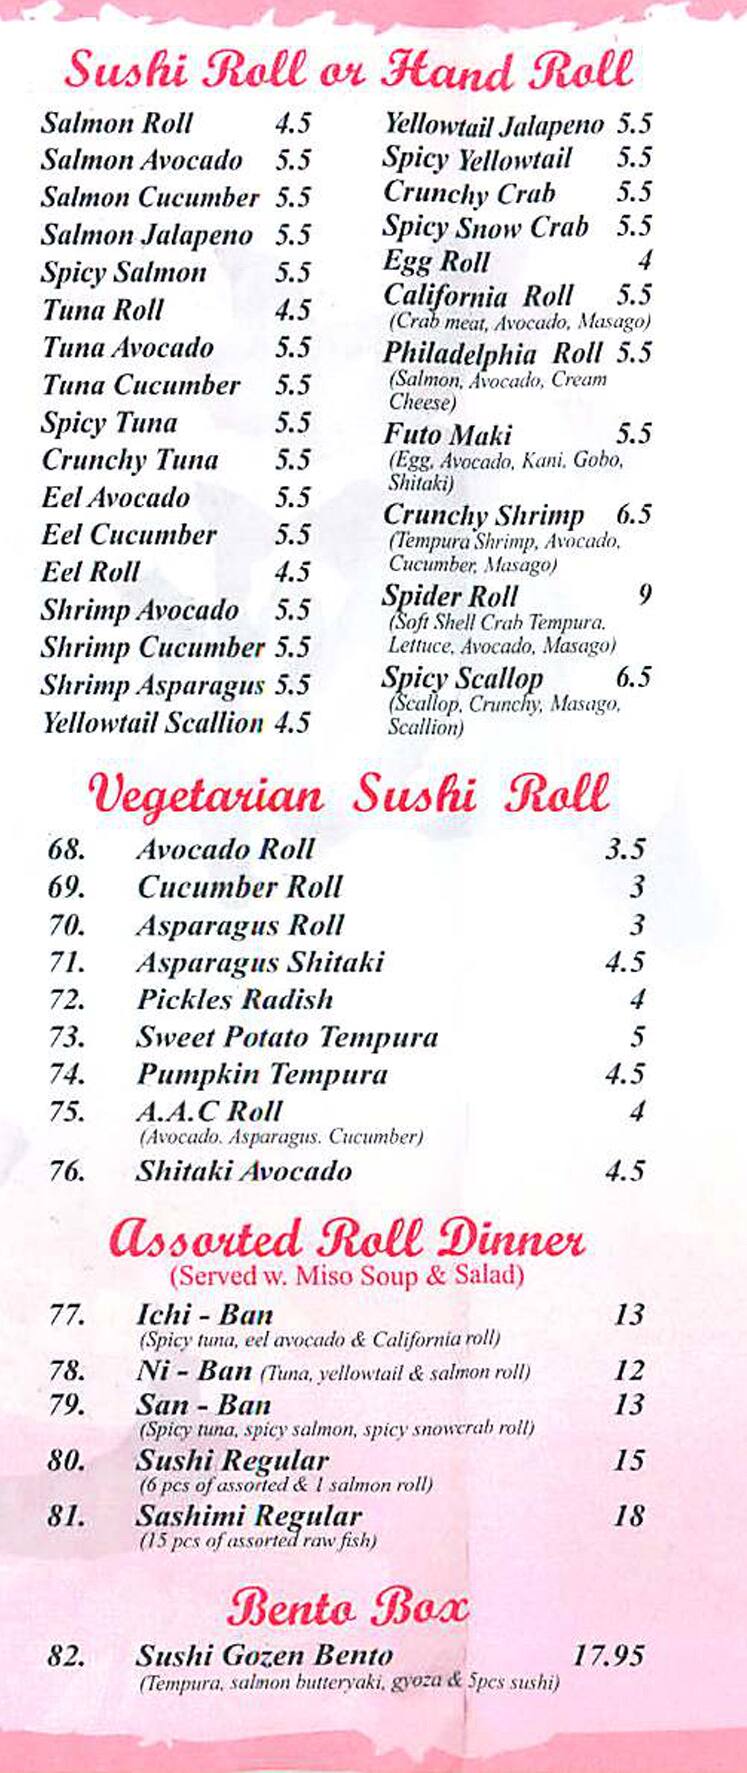 Sushi Roll or Hand Roll
Salmon Roll 4.5
Salmon Avocado 5.5
Salmon Cucumber 5.5
Salmon Jalapeno 5.5
Spicy Salmon 5.5
Tuna Roll 4.5
Tuna Avocado 5.5
Tuna Cucumber 5.5
Spicy Tuna 5.5
Crunchy Tuna 5.5
Eel Avocado 5.5
Eel Cucumber 5.5
Eel Roll 4.5
Shrimp Avocado 5.5
Shrimp Cucumber 5.5
Shrimp Asparagus 5.5
Yellowtail Scallion 4.5
Yellowtail Jalapeno 5.5
Spicy Yellowtail 5.5
Crunchy Crab 5.5
Spicy Snow Crab 5.5
Egg Roll 4
California Roll 5.5
(Crab meat, Avocado, Masago)
Philadelphia Roll 5.5
(Salmon, Avocado, Cream
Cheese)
Futo Maki 5.5
(Egg, Avocado, Kani, Gobo,
Shitaki)
Crunchy Shrimp 6.5
(Tempura Shrimp, Avocado,
Cucumber, Masago)
Spider Roll 9
(Soft Shell Crab Tempura.
Lettuce, Avocado, Masago)
Spicy Scallop 6.5
(Scallop, Crunchy, Masago,
Scallion)
Vegetarian Sushi Roll
68. Avocado Roll 3.5
69. Cucumber Roll 3
70. Asparagus Roll 3
71. Asparagus Shitaki 4.5
72. Pickles Radish 4
73. Sweet Potato Tempura 5
74. Pumpkin Tempura 4.5
75. A.A.C Roll 4
(Avocado. Asparagus. Cucumber)
76. Shitaki Avocado 4.5
Assorted Roll Dinner
(Served w. Miso Soup & Salad)
77. Ichi - Ban 13
(Spicy tuna, eel avocado & California roll)
78. Ni - Ban (Tuna, yellowtail & salmon roll) 12
79. San - Ban 13
(Spicy tuna, spicy salmon, spicy snowcrab roll)
80. Sushi Regular 15
(6 pcs of assorted & 1 salmon roll)
81. Sashimi Regular 18
(15 pcs of assorted raw fish)
Bento Box
82. Sushi Gozen Bento 17.95
(Tempura, salmon butteryaki, gyoza & 5pcs sushi)